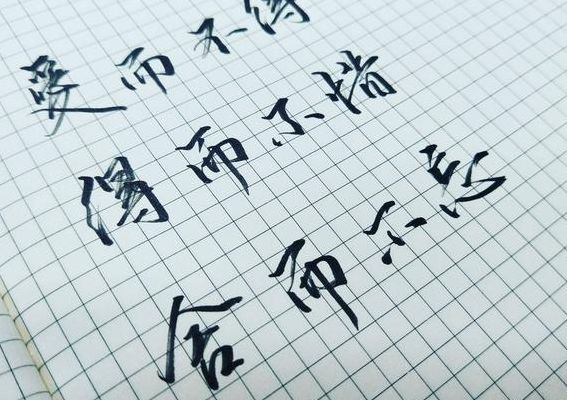 爱而不得
得而不惜
舍而不忍